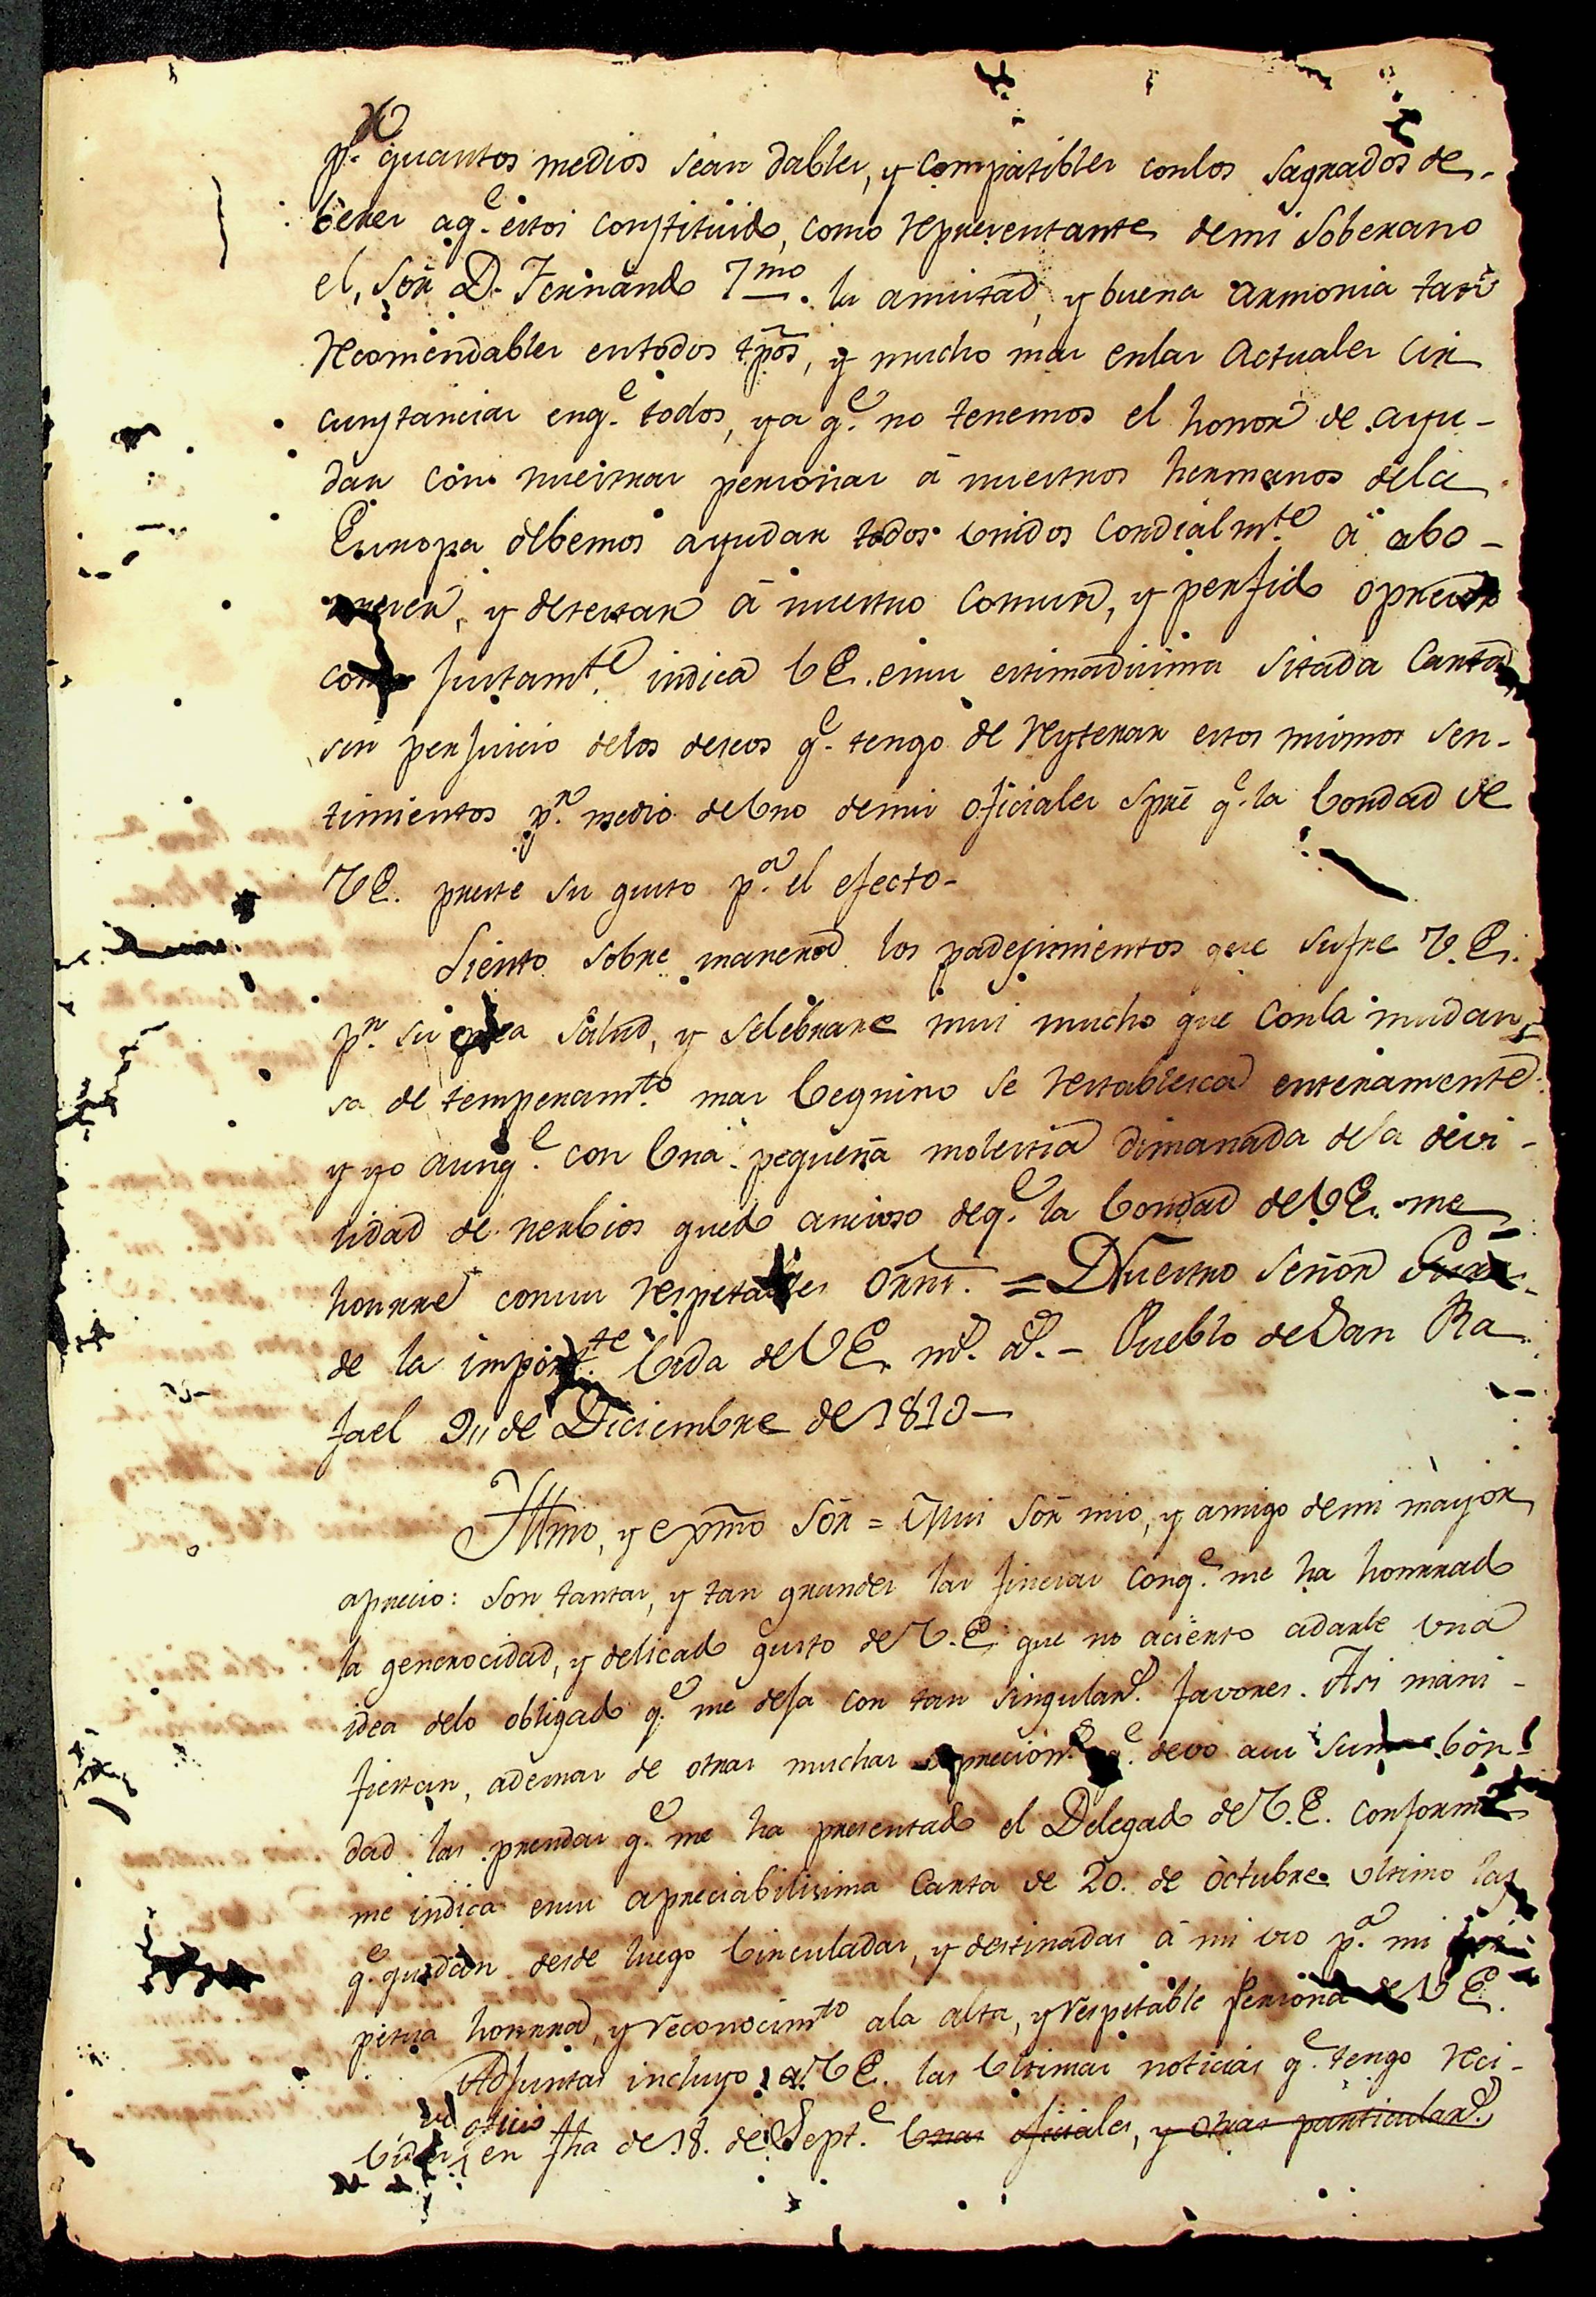 pr. quantos medios sean dables, y compatibles conlos sagrados de-
beres aqe. estoi constituido, como representante demi Soberano
el, Sōr Dn. Fernando 7mo. la amistad, y buena armonia tan
recomendables entodos tpōs, y mucho mas enlas actuales cir
cunstancias enqe. todos, ya qe. no tenemos el honor de ayu-
dar con nuestras personas á nuestros hermanos dela
Europa debemos ayudar todos unidos cordialmte. á abo-
rrecer, y detestar á nuestro comun, y perfido opresor
como justamte. indica V E. ensu estimadisima sitada Carta,
sin perjuicio delos deseos qe. tengo de reyterar estos mismos sen-
timientos pr. medio deuno demis oficiales sprē qe. la bondad de
V E. preste su gusto pa. el efecto-
Siento sobre manera los padesimientos que sufre V. E.
pr. su salud, y selebrare mui mucho que conla mudan
sa de temperamto. mas benigno se restablesca enteramente
y yo aunqe. con una pequeña molestia dimanada dela devi-
lidad de nerbios quedo ancioso deqe. la bondad deV E. me
honrre consus respetables ōrns. = Dnuestro Señor Guar-
de la importte. bida deV E. ms. as. - Pueblo deSan Ra
fael 9,, de Diciembre de 1810-
Yllmo, y exmō Sōr = Mui Sōr mio, y amigo demi mayor
aprecio: son tantas, y tan grandes las finesas conqe. me ha honrrado
la generocidad, y delicado gusto de V. E. que no acierto adarle una
idea delo obligado qe. me deja con tan singulars. favores. Asi mani-
fiestan, ademas de otras muchas qe. devo asu suma bon-
dad las prendas qe. me ha presentado el Delegado de V. E. conforme
me indica ensu apreciabilisima Carta de 20. de octubre ultimo las
qe. quedan desde luego binculadas, y destinadas á mi uso pa. mi
petua honrra, y reconocimto ala alta, y respetable Persona de V E.
Adjuntas incluyo, a V E. las ultimas noticias qe. tengo reci-
oficio
bidas en fha de 18. de Septe. unas oficiales, y otras particulars.